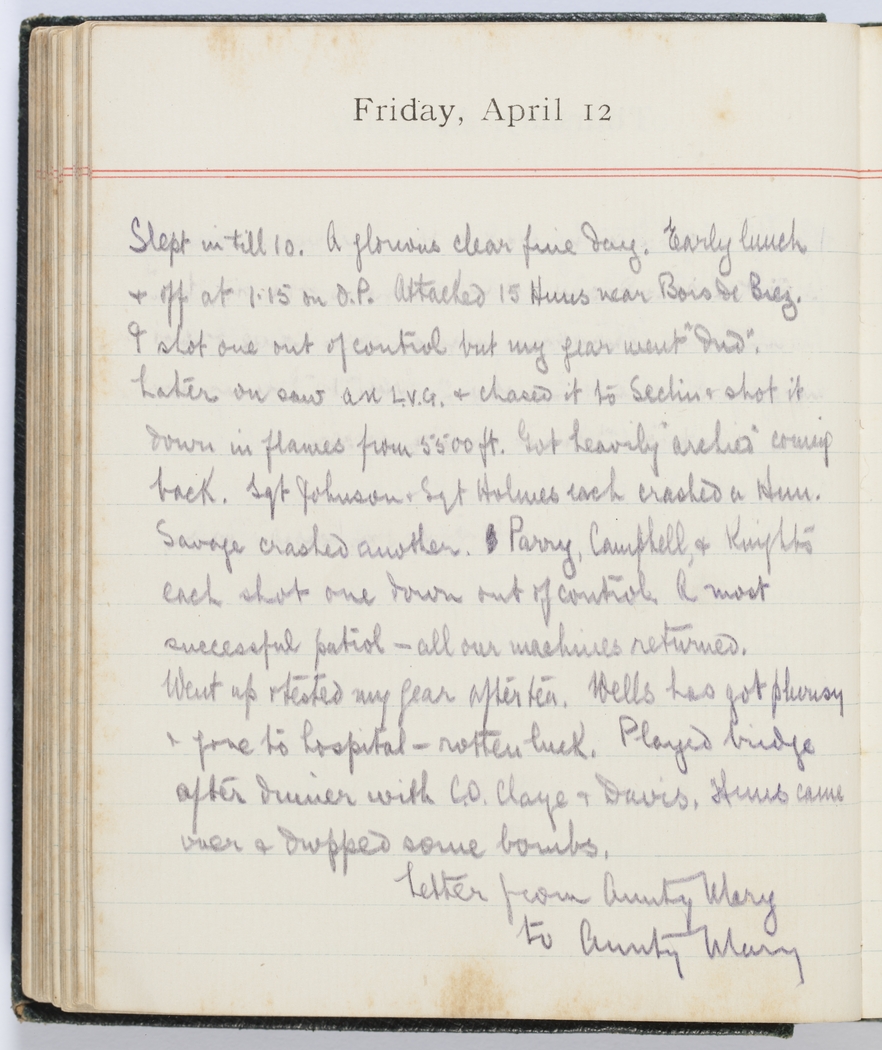 Friday, April 12
Slept in till 10. A glorious clear fine day. Early lunch
+ off at 1.15 on O.P. Attacked 15 Huns near Bois de Biez.
I shot one out of control but my gear went "dud".
Later on saw an L.V.G. + chased it to Seclin + shot it
down in flames from 5500 ft. Got heavily "archied" coming
back. Sgt Johnson + Sgt Holmes each crashed a Hun.
Savage crashed another. Parry, Campbell, + Knights
each shot one down out of control. A most
successful patrol – all our machines returned.
Went up + tested my gear after tea. Wells has got pleurisy
+ gone to hospital – rotten luck. Played bridge
after dinner with C.O. Claye + Davis. Huns came
over + dropped some bombs.
Letter from Aunty Mary
to Aunty Mary